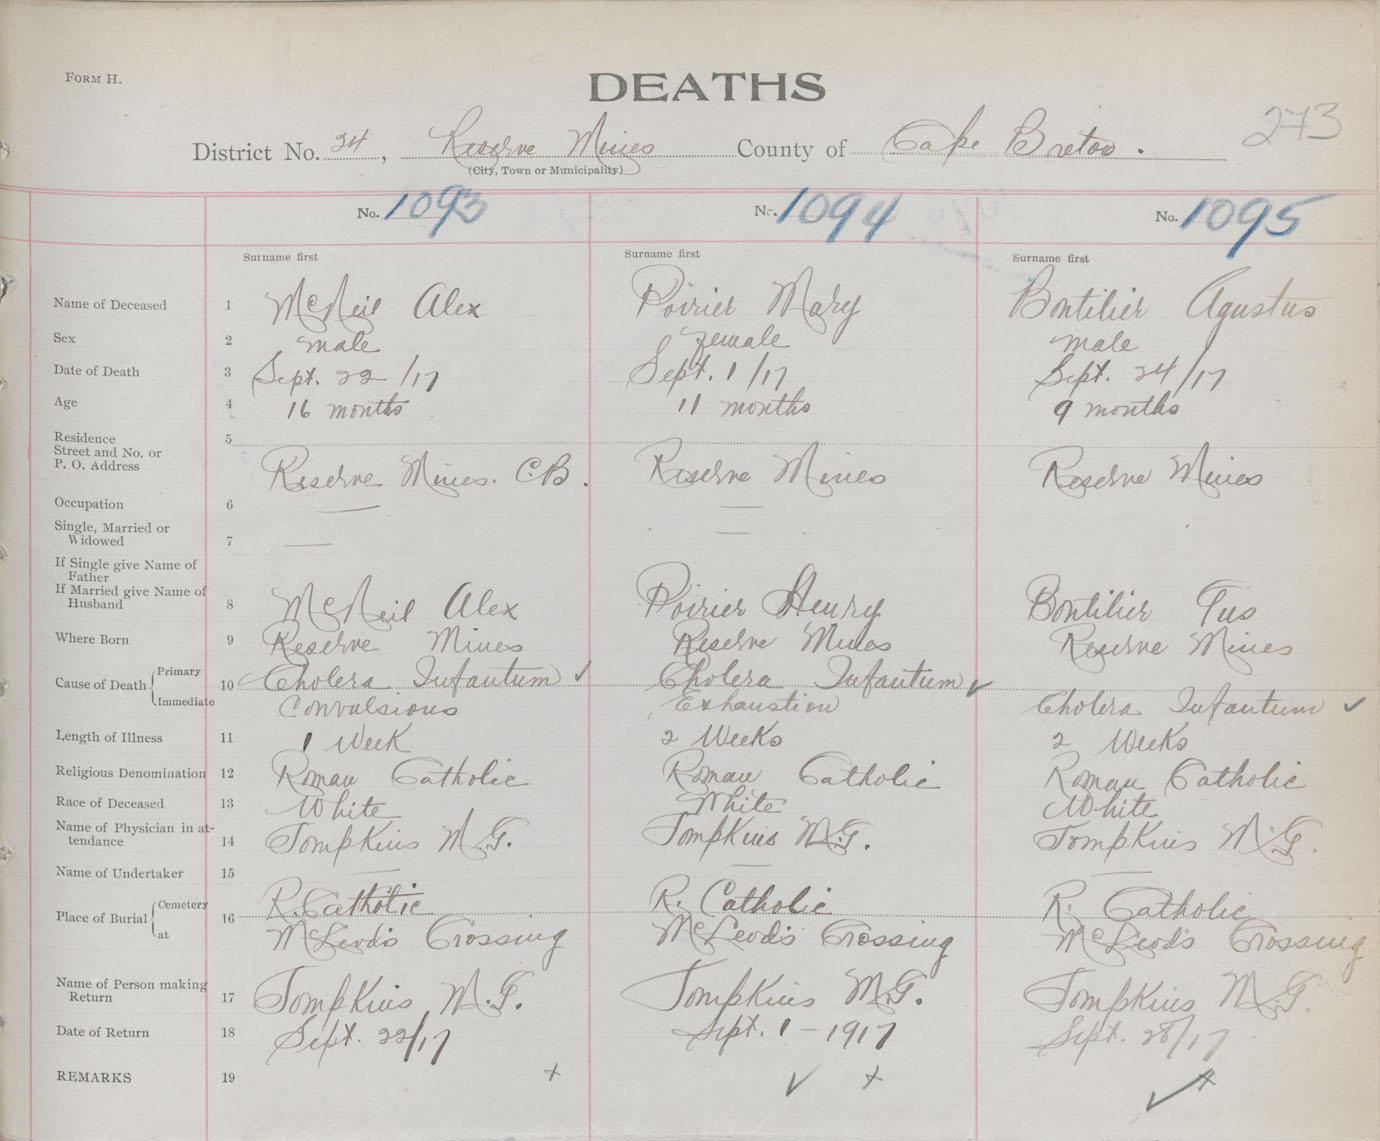 FORM H.
DEATHS
273
District No. 24, Reserve Mines County of Cape Breton.
(City, Town or Municipality)
No. 1093 No. 1094 No. 1095
Surname first Surname first Surname first
Name of Deceased 1 McNeil Alex Poirier Mary Bontilier Agustus
Sex 2 male female male
Date of Death 3 Sept. 22/17 Sept. 1/17 Sept. 24/17
Age 4 16 months 11 months 9 months
Residence 5
Street and No. or
P. O. Address Reserve Mines. C.B. Reserve Mines Reserve Mines
Occupation 6 — —
Single, Married or
Widowed 7 — —
If Single give Name of
Father
If Married give Name of
Husband 8 McNeil Alex Poirier Henry Bontilier Gus
Where Born 9 Reserve Mines Reserve Mines Reserve Mines
Cause of Death { Primary 10 Cholera Infantum ✓ Cholera Infantum ✓
Immediate Convulsions Exhaustion Cholera Infantum ✓
Length of Illness 11 1 Week 2 Weeks 2 Weeks
Religious Denomination 12 Roman Catholic Roman Catholic Roman Catholic
Race of Deceased 13 White White White
Name of Physician in at-
tendance 14 Tompkins M.G. Tompkins M.G. Tompkins M.G.
Name of Undertaker 15 — — —
Place of Burial { Cemetery 16 R. Catholic R. Catholic R. Catholic
at McLeod's Crossing McLeod's Crossing McLeod's Crossing
Name of Person making
Return 17 Tompkins M.G. Tompkins M.G. Tompkins M.G.
Date of Return 18 Sept. 22/17 Sept. 1-1917 Sept. 28/17
REMARKS 19 + ✓ + ✓ +